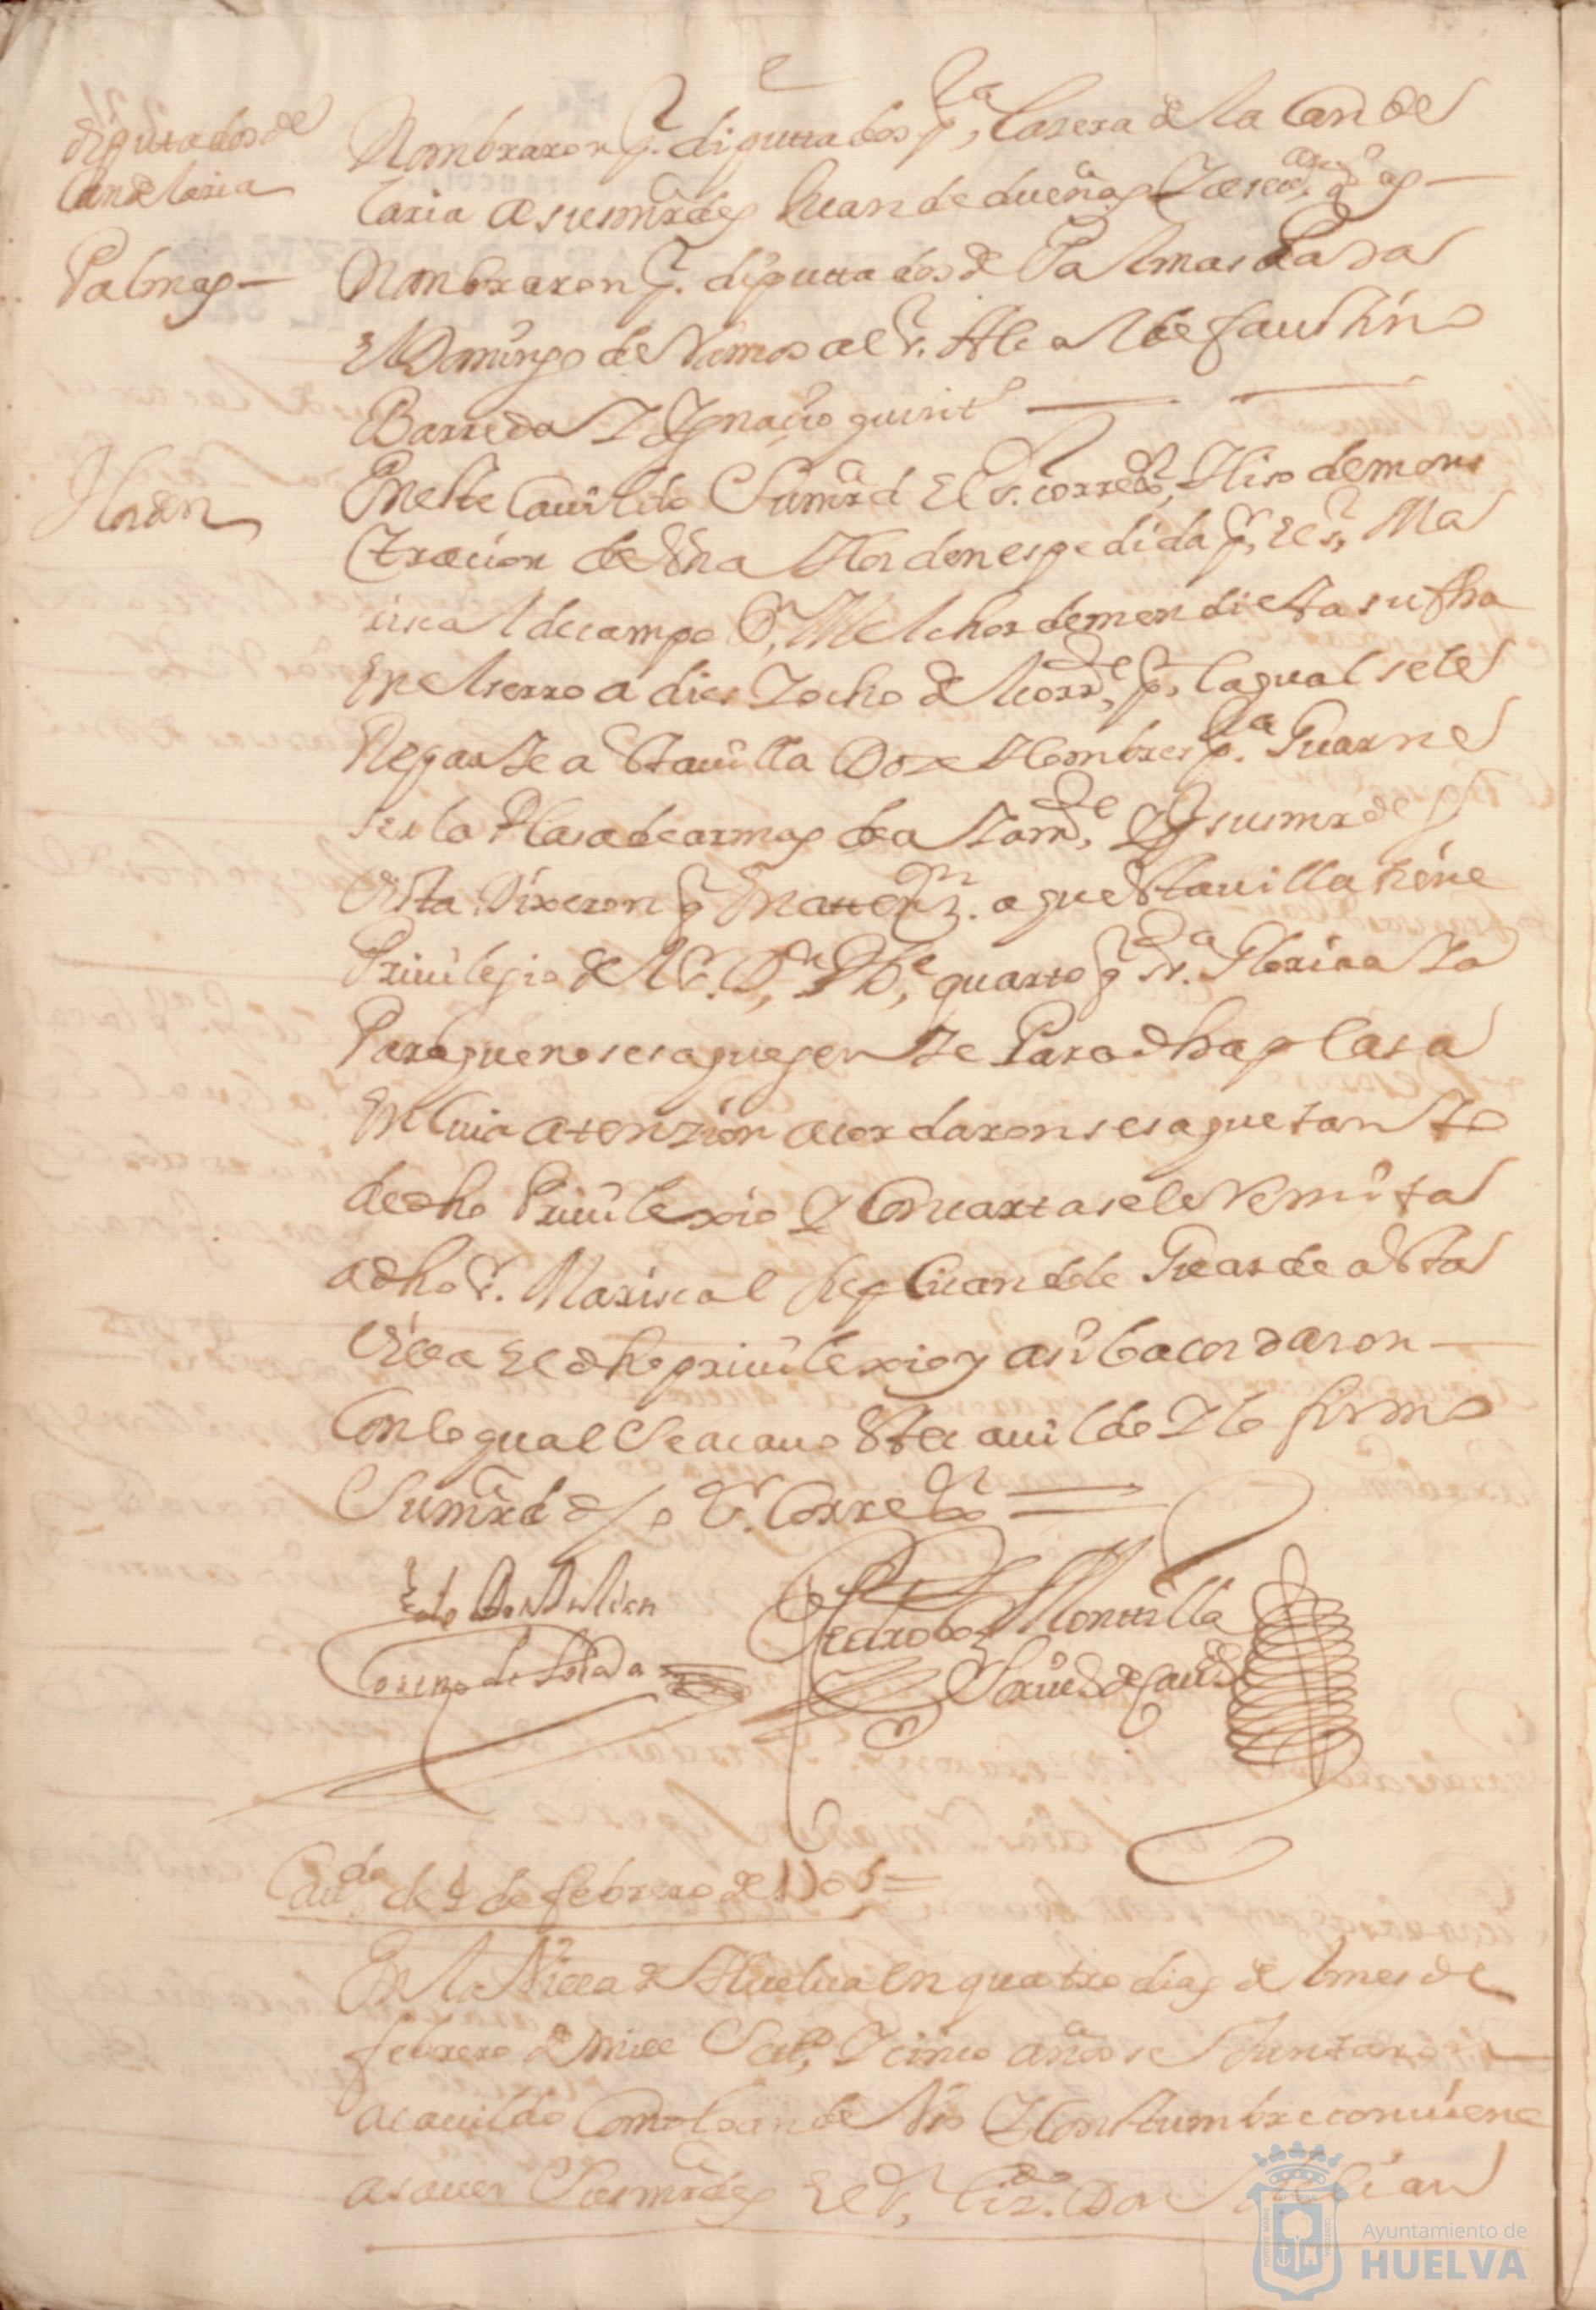 diputados de
Candelaria
Nombraron p.r diputtados p.a la sera de la Cande
laria a sus mrdes Juan de dueñas
Palmas
Nombraron p.r diputtados de Palmas Para
El Domingo de Ramos al S.r Alcalde faustino
Barreda Y Ygnacio quint.o
Horden
En este Cauildo Su mrd El S.r corre.or Hiso demons
tracion de Vna Horden espedida p.r El S.r Ma
riscal de campo D.n Melchor de mendieta su fha
En el serro a dies Y ocho del corr.te p.r la qual se le
Reparte a Esta uilla Doze Hombres p.a Guarne
ser la Plasa de armas de a Yam.te Y p.r sus mrdes
Vista Dixeron q En atten.on a que Esta uilla tiene
Priuilegio del S.r D.n Phe quarto q D.s
Para que no se saque gente Para dha plasa
En Cuia atenzion acordaron se saque tanto
de dho Priuilexio Y Con carta se le Remita
a dho S.r Mariscal Suplicandole Guarde a Esta
Villa El dho priuilexio y asi lo acordaron
Con lo qual Se acauo Este cauildo Y lo firmo
Su mrd dho S.r Corre.or
Lz.do Don Julian
Pedro de Monttilla
Scriu.o de Cau.do
Cau.do de 4 de febrero de 1705
En la Villa de Huelua en quatro dias del mes de
febrero de mill Set.s Y cinco años se Juntaron
a cauildo Como lo an de Vso Y Costumbre conuiene
a sauer Sus mrdes El S.r Liz.do Don Julian
Ayuntamiento de
HUELVA